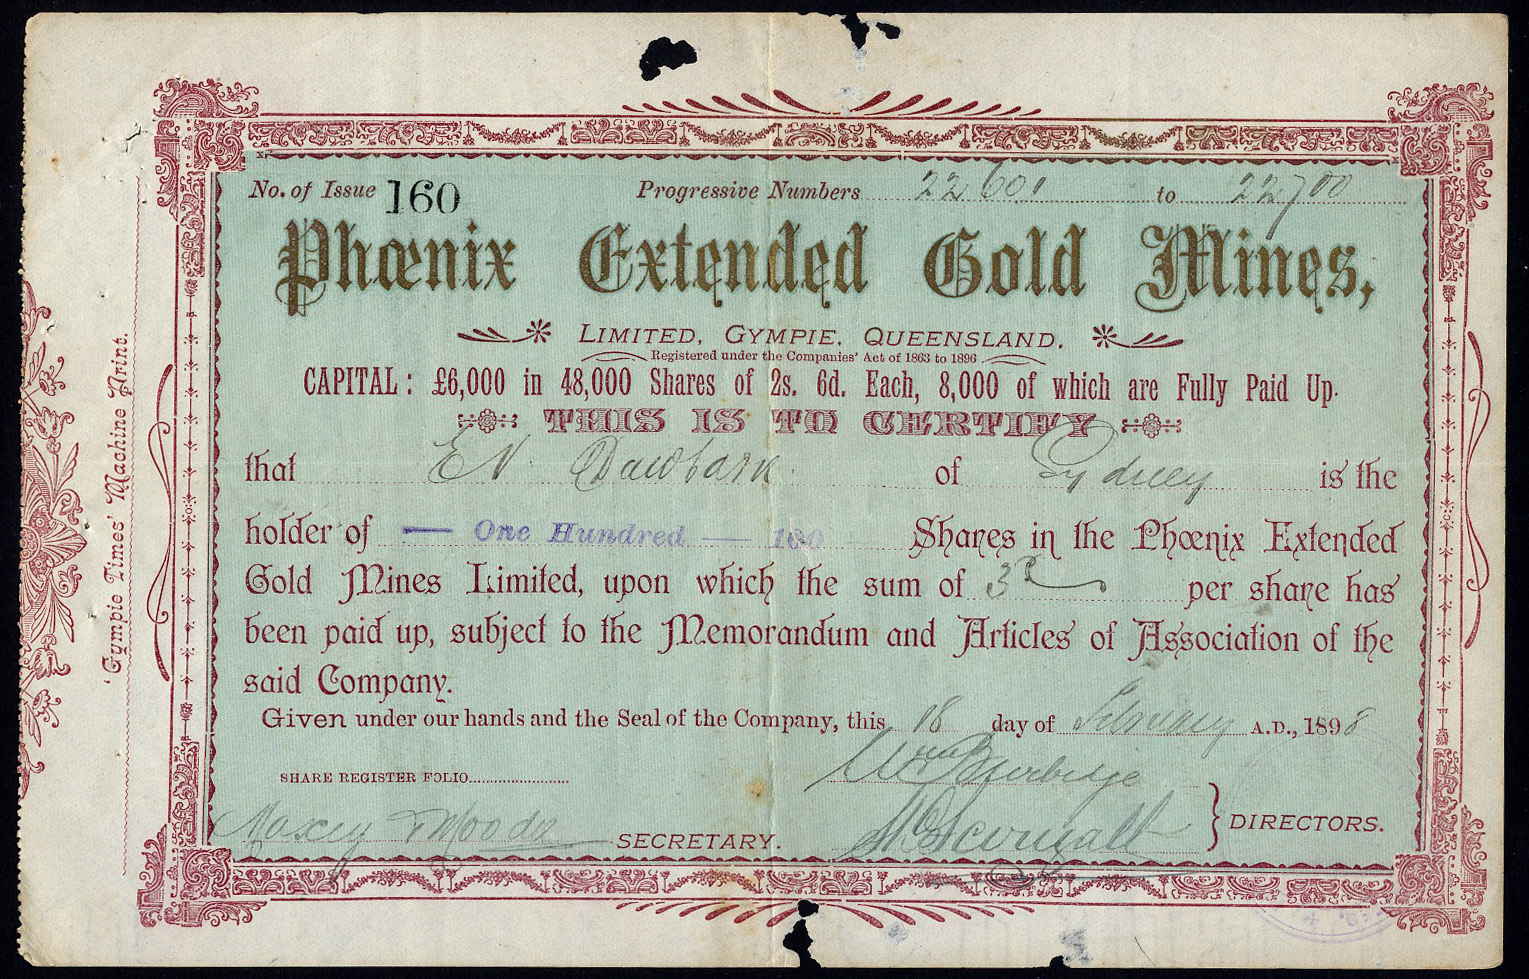 No. of Issue 160 Progressive Numbers 22601 to 22700
Phœnix Extended Gold Mines,
LIMITED, GYMPIE, QUEENSLAND.
Registered under the Companies' Act of 1863 to 1896
CAPITAL: £6,000 in 48,000 Shares of 2s. 6d. Each, 8,000 of which are Fully Paid Up.
THIS IS TO CERTIFY
that E N Dawbarn of Sydney is the
holder of — One Hundred — 100 Shares in the Phœnix Extended
Gold Mines Limited, upon which the sum of 3d per share has
been paid up, subject to the Memorandum and Articles of Association of the
said Company.
Given under our hands and the Seal of the Company, this 18 day of February A.D., 1898
SHARE REGISTER FOLIO
Wm Burbidge
DIRECTORS.
SECRETARY.
'Gympie Times' Machine Print.